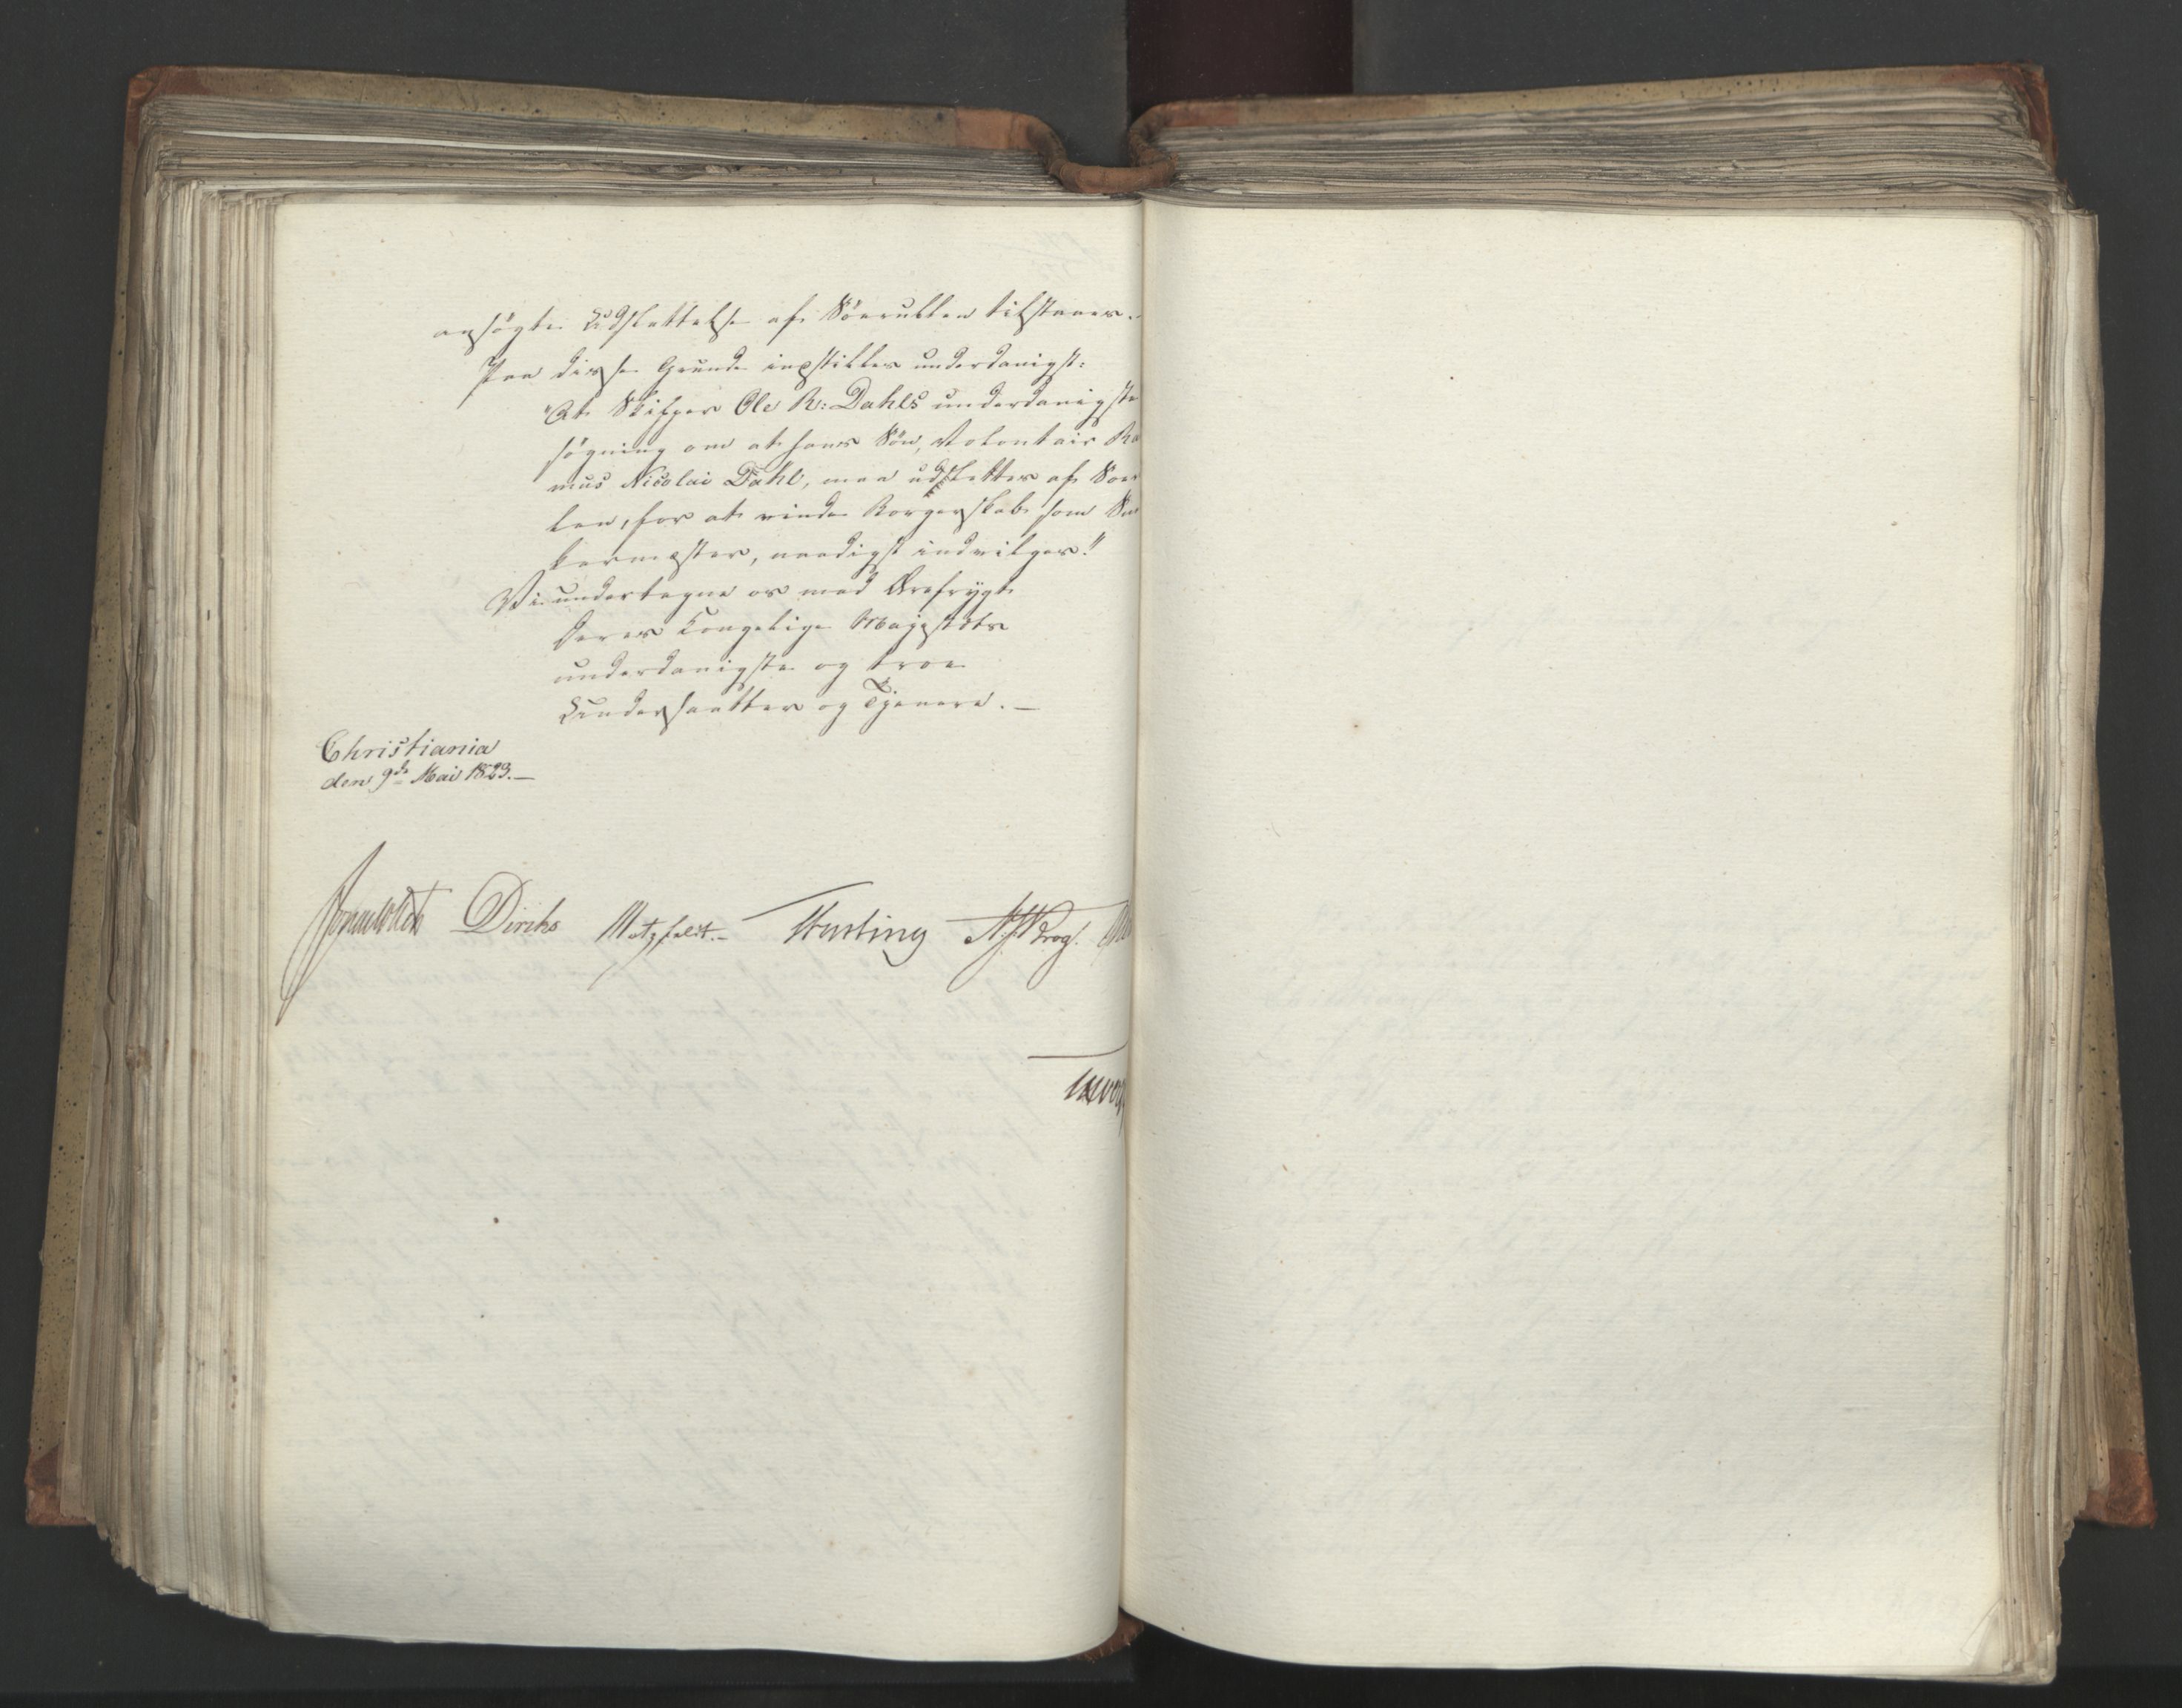 ansøgte Udslettelse af Søerullen tilstaaes.
Paa disse Grunde indstilles underdanigst:
"At Skipper Ole R: Dahls underdanigste
søgning om at hans Søn, Volontair Ra
mus Nicolai Dahl, maa udslettes af Søer
len, for at vinde Borgerskab som
kermester, naadigst indvilges."
Vi undertegne os med Ærefrygt
Deres Kongelige Majestæts
underdanigste og troe
Undersaatter og Tjenere. —
Christiania
den 9de Mai 1823. —
Sommerhielm Diriks Motzfeldt. — Fasting N. J. Krog.